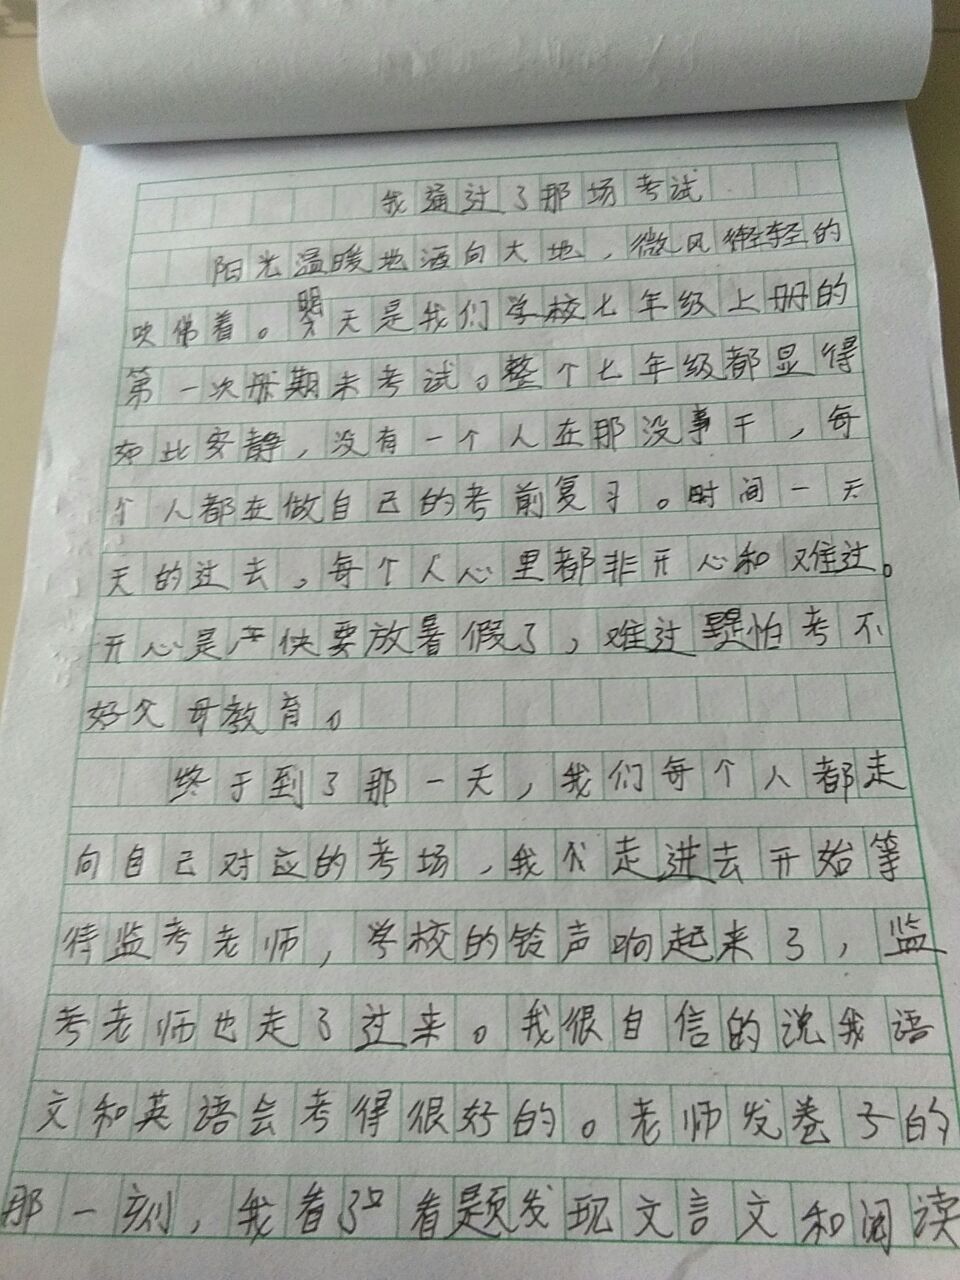 我通过了那场考试
阳光温暖地洒向大地，微风轻轻的
吹佛着。明天是我们学校七年级上册的
第一次册期末考试。整个七年级都显得
如此安静，没有一个人在那没事干，每
个人都在做自己的考前复习。时间一天
天的过去，每个人心里都非开心和难过。
开心是产快要放暑假了，难过是怕考不
好父母教育。
终于到了那一天，我们每个人都走
向自己对应的考场，我们走进去开始等
待监考老师，学校的铃声响起来了，监
考老师也走了过来。我很自信的说我语
文和英语会考得很好的。老师发卷子的
那一刻，我看了看题发现文言文和阅读